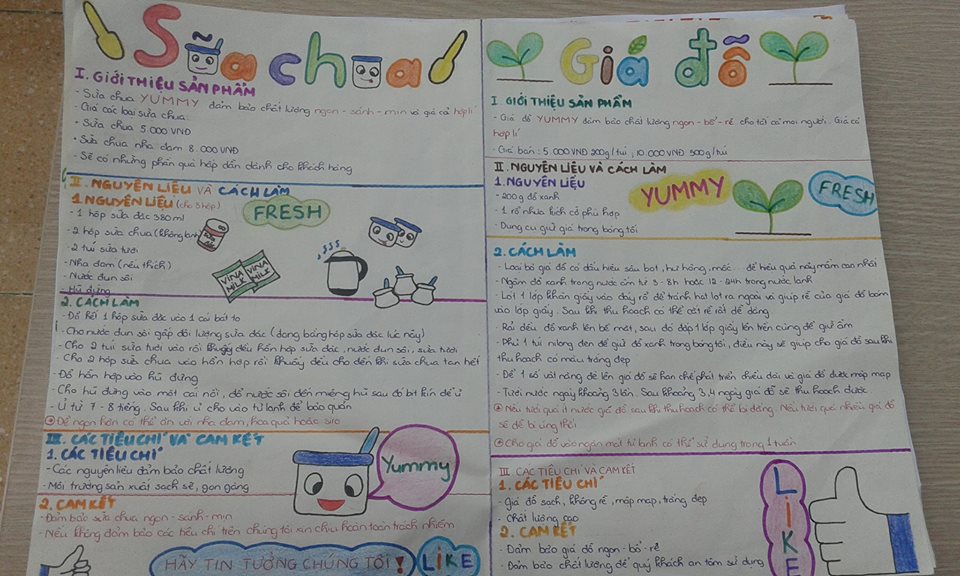 Sữa chua
I. GIỚI THIỆU SẢN PHẨM
- Sữa chua YUMMY đảm bảo chất lượng ngon - sánh - mịn và giá cả hợp lí
- Giá các loại sữa chua:
+ Sữa chua 5.000 VNĐ
+ Sữa chua nha đam 8.000 VNĐ
- Sẽ có những phần quà hấp dẫn dành cho khách hàng
II. NGUYÊN LIỆU VÀ CÁCH LÀM
1. NGUYÊN LIỆU (cho 5 hộp)
FRESH
- 1 hộp sữa đặc 380ml
- 2 hộp sữa chua (không lạnh)
- 2 túi sữa tươi
- Nha đam (nếu thích)
- Nước đun sôi
- Hũ đựng
VINA MILK
VINA MILK
2. CÁCH LÀM
- Đổ hết 1 hộp sữa đặc vào 1 cái bát to
- Cho nước đun sôi gấp đôi lượng sữa đặc (đong bằng hộp sữa đặc lúc nãy)
- Cho 2 túi sữa tươi vào rồi khuấy đều hỗn hợp sữa đặc, nước đun sôi, sữa tươi
- Cho 2 hộp sữa chua vào hỗn hợp rồi khuấy đều cho đến khi sữa chua tan hết
- Đổ hỗn hợp vào hũ đựng
- Cho hũ đựng vào một cái nồi, đổ nước sôi đến miệng hũ sau đó bịt kín để ủ
- Ủ từ 7 - 8 tiếng. Sau khi ủ cho vào tủ lạnh để bảo quản
Để ngon hơn có thể ăn với nha đam, hoa quả hoặc siro
III. CÁC TIÊU CHÍ VÀ CAM KẾT
1. CÁC TIÊU CHÍ
- Các nguyên liệu đảm bảo chất lượng
- Môi trường sản xuất sạch sẽ, gọn gàng
Yummy
2. CAM KẾT
- Đảm bảo sữa chua ngon - sánh - mịn
- Nếu không đảm bảo các tiêu chí trên chúng tôi xin chịu hoàn toàn trách nhiệm
HÃY TIN TƯỞNG CHÚNG TÔI!
LIKE
Giá đỗ
I GIỚI THIỆU SẢN PHẨM
- Giá đỗ YUMMY đảm bảo chất lượng ngon - bổ - rẻ cho tất cả mọi người. Giá cả
hợp lí
- Giá bán: 5.000 VNĐ 200g/túi; 10.000 VNĐ 500g/túi
II. NGUYÊN LIỆU VÀ CÁCH LÀM
1. NGUYÊN LIỆU
- 200g đỗ xanh
- 1 rổ nhựa kích cỡ phù hợp
- Dụng cụ giữ giá trong bóng tối
YUMMY
FRESH
2. CÁCH LÀM
- Loại bỏ giá đỗ có dấu hiệu sâu bọt, hư hỏng, mốc... để hiệu quả nảy mầm cao nhất
- Ngâm đỗ xanh trong nước ấm từ 5 - 8h hoặc 12 - 24h trong nước lạnh
- Lót 1 lớp khăn giấy vào đáy rổ để tránh hạt lọt ra ngoài và giúp rễ của giá đỗ bám
vào lớp giấy. Sau khi thu hoạch có thể cắt rễ rất dễ dàng
- Rải đều đỗ xanh lên bề mặt, sau đó đắp 1 lớp giấy lên trên cùng để giữ ẩm
- Phủ 1 túi nilong đen để giữ đỗ xanh trong bóng tối, điều này sẽ giúp cho giá đỗ sau khi
thu hoạch có màu trắng đẹp
- Để 1 số vật nặng đè lên giá đỗ sẽ hạn chế phát triển chiều dài và giá đỗ được mập mạp
- Tưới nước ngày khoảng 3 lần. Sau khoảng 3, 4 ngày giá đỗ sẽ thu hoạch được
Nếu tưới quá ít nước giá đỗ sau khi thu hoạch có thể bị đắng. Nếu tưới quá nhiều giá đỗ
sẽ dễ bị úng thối
Cho giá đỗ vào ngăn mát tủ lạnh có thể sử dụng trong 1 tuần
III. CÁC TIÊU CHÍ VÀ CAM KẾT
1. CÁC TIÊU CHÍ
- Giá đỗ sạch, không rễ, mập mạp, trắng đẹp
- Chất lượng cao
2. CAM KẾT
- Đảm bảo giá đỗ ngon - bổ - rẻ
- Đảm bảo chất lượng để quý khách an tâm sử dụng
LIKE